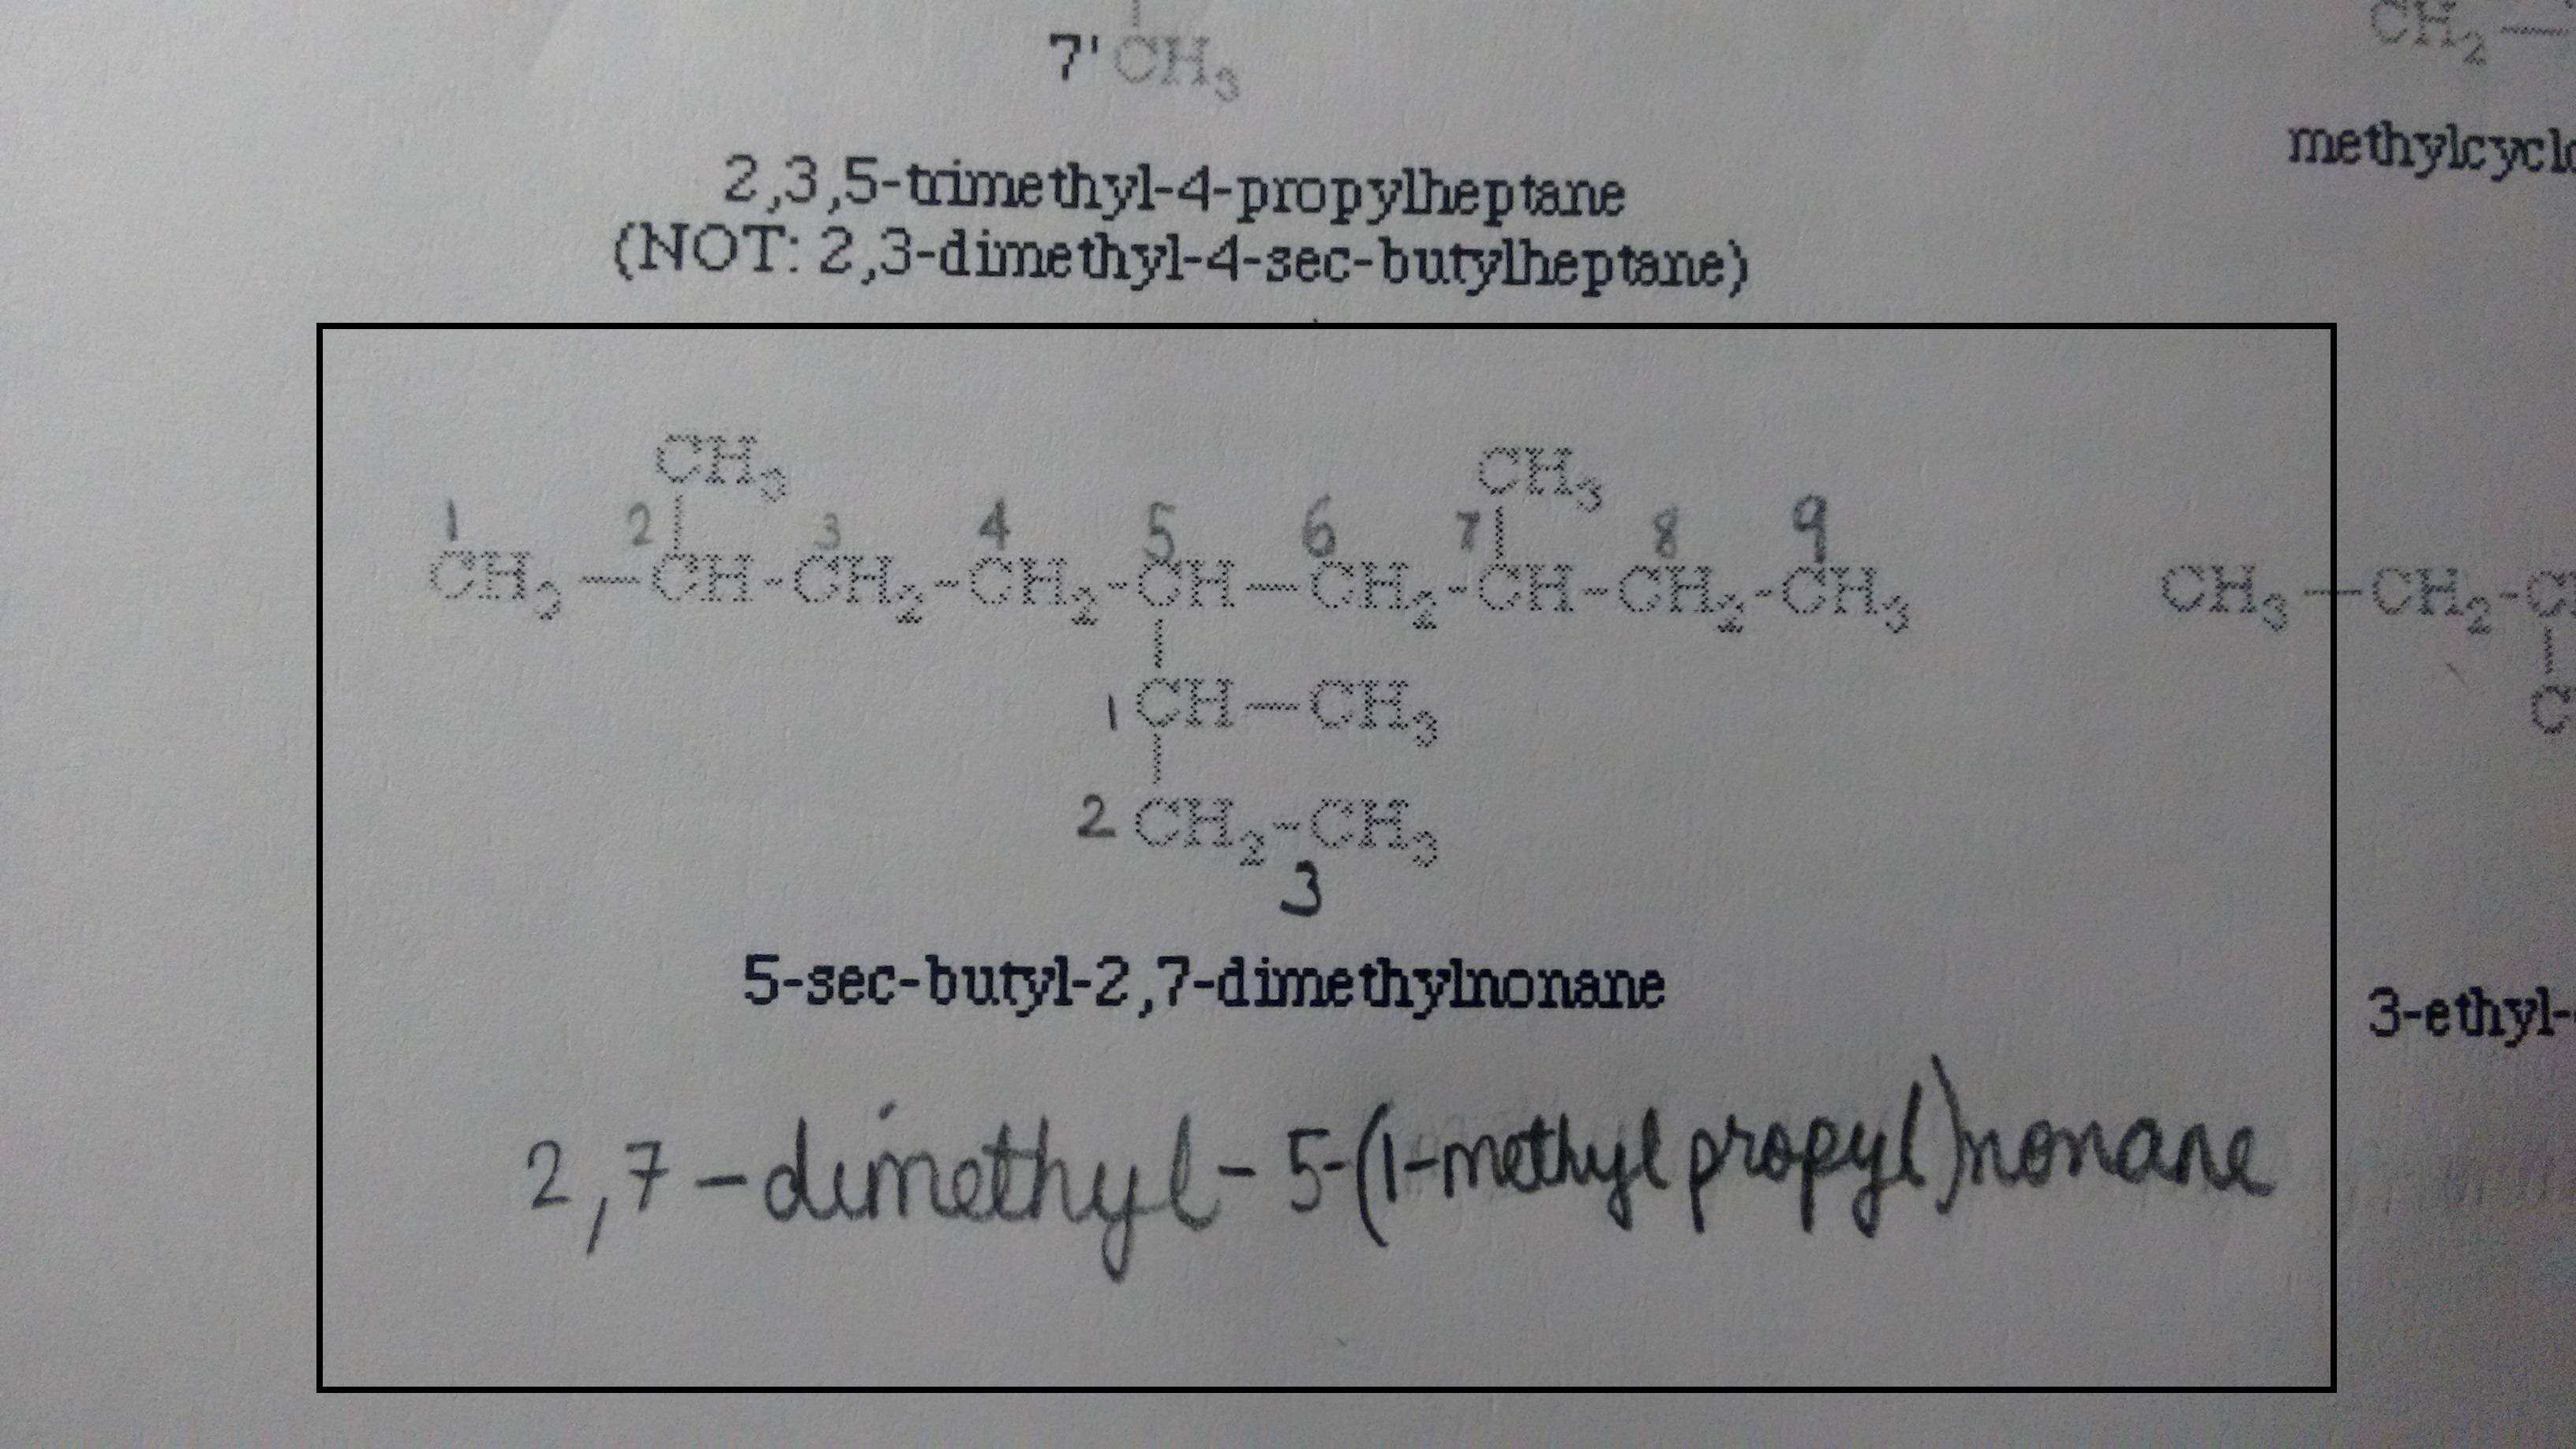 7' CH3
CH2—
methylcyclo
2,3,5-trimethyl-4-propylheptane
(NOT: 2,3-dimethyl-4-sec-butylheptane)
CH3 CH3
1 2 3 4 5 6 7 8 9
CH3—CH-CH2-CH2-CH—CH2-CH-CH2-CH3
CH3—CH2-
1 CH—CH3
2 CH2-CH3
3
5-sec-butyl-2,7-dimethylnonane
3-ethyl-
2,7-dimethyl-5-(1-methylpropyl)nonane